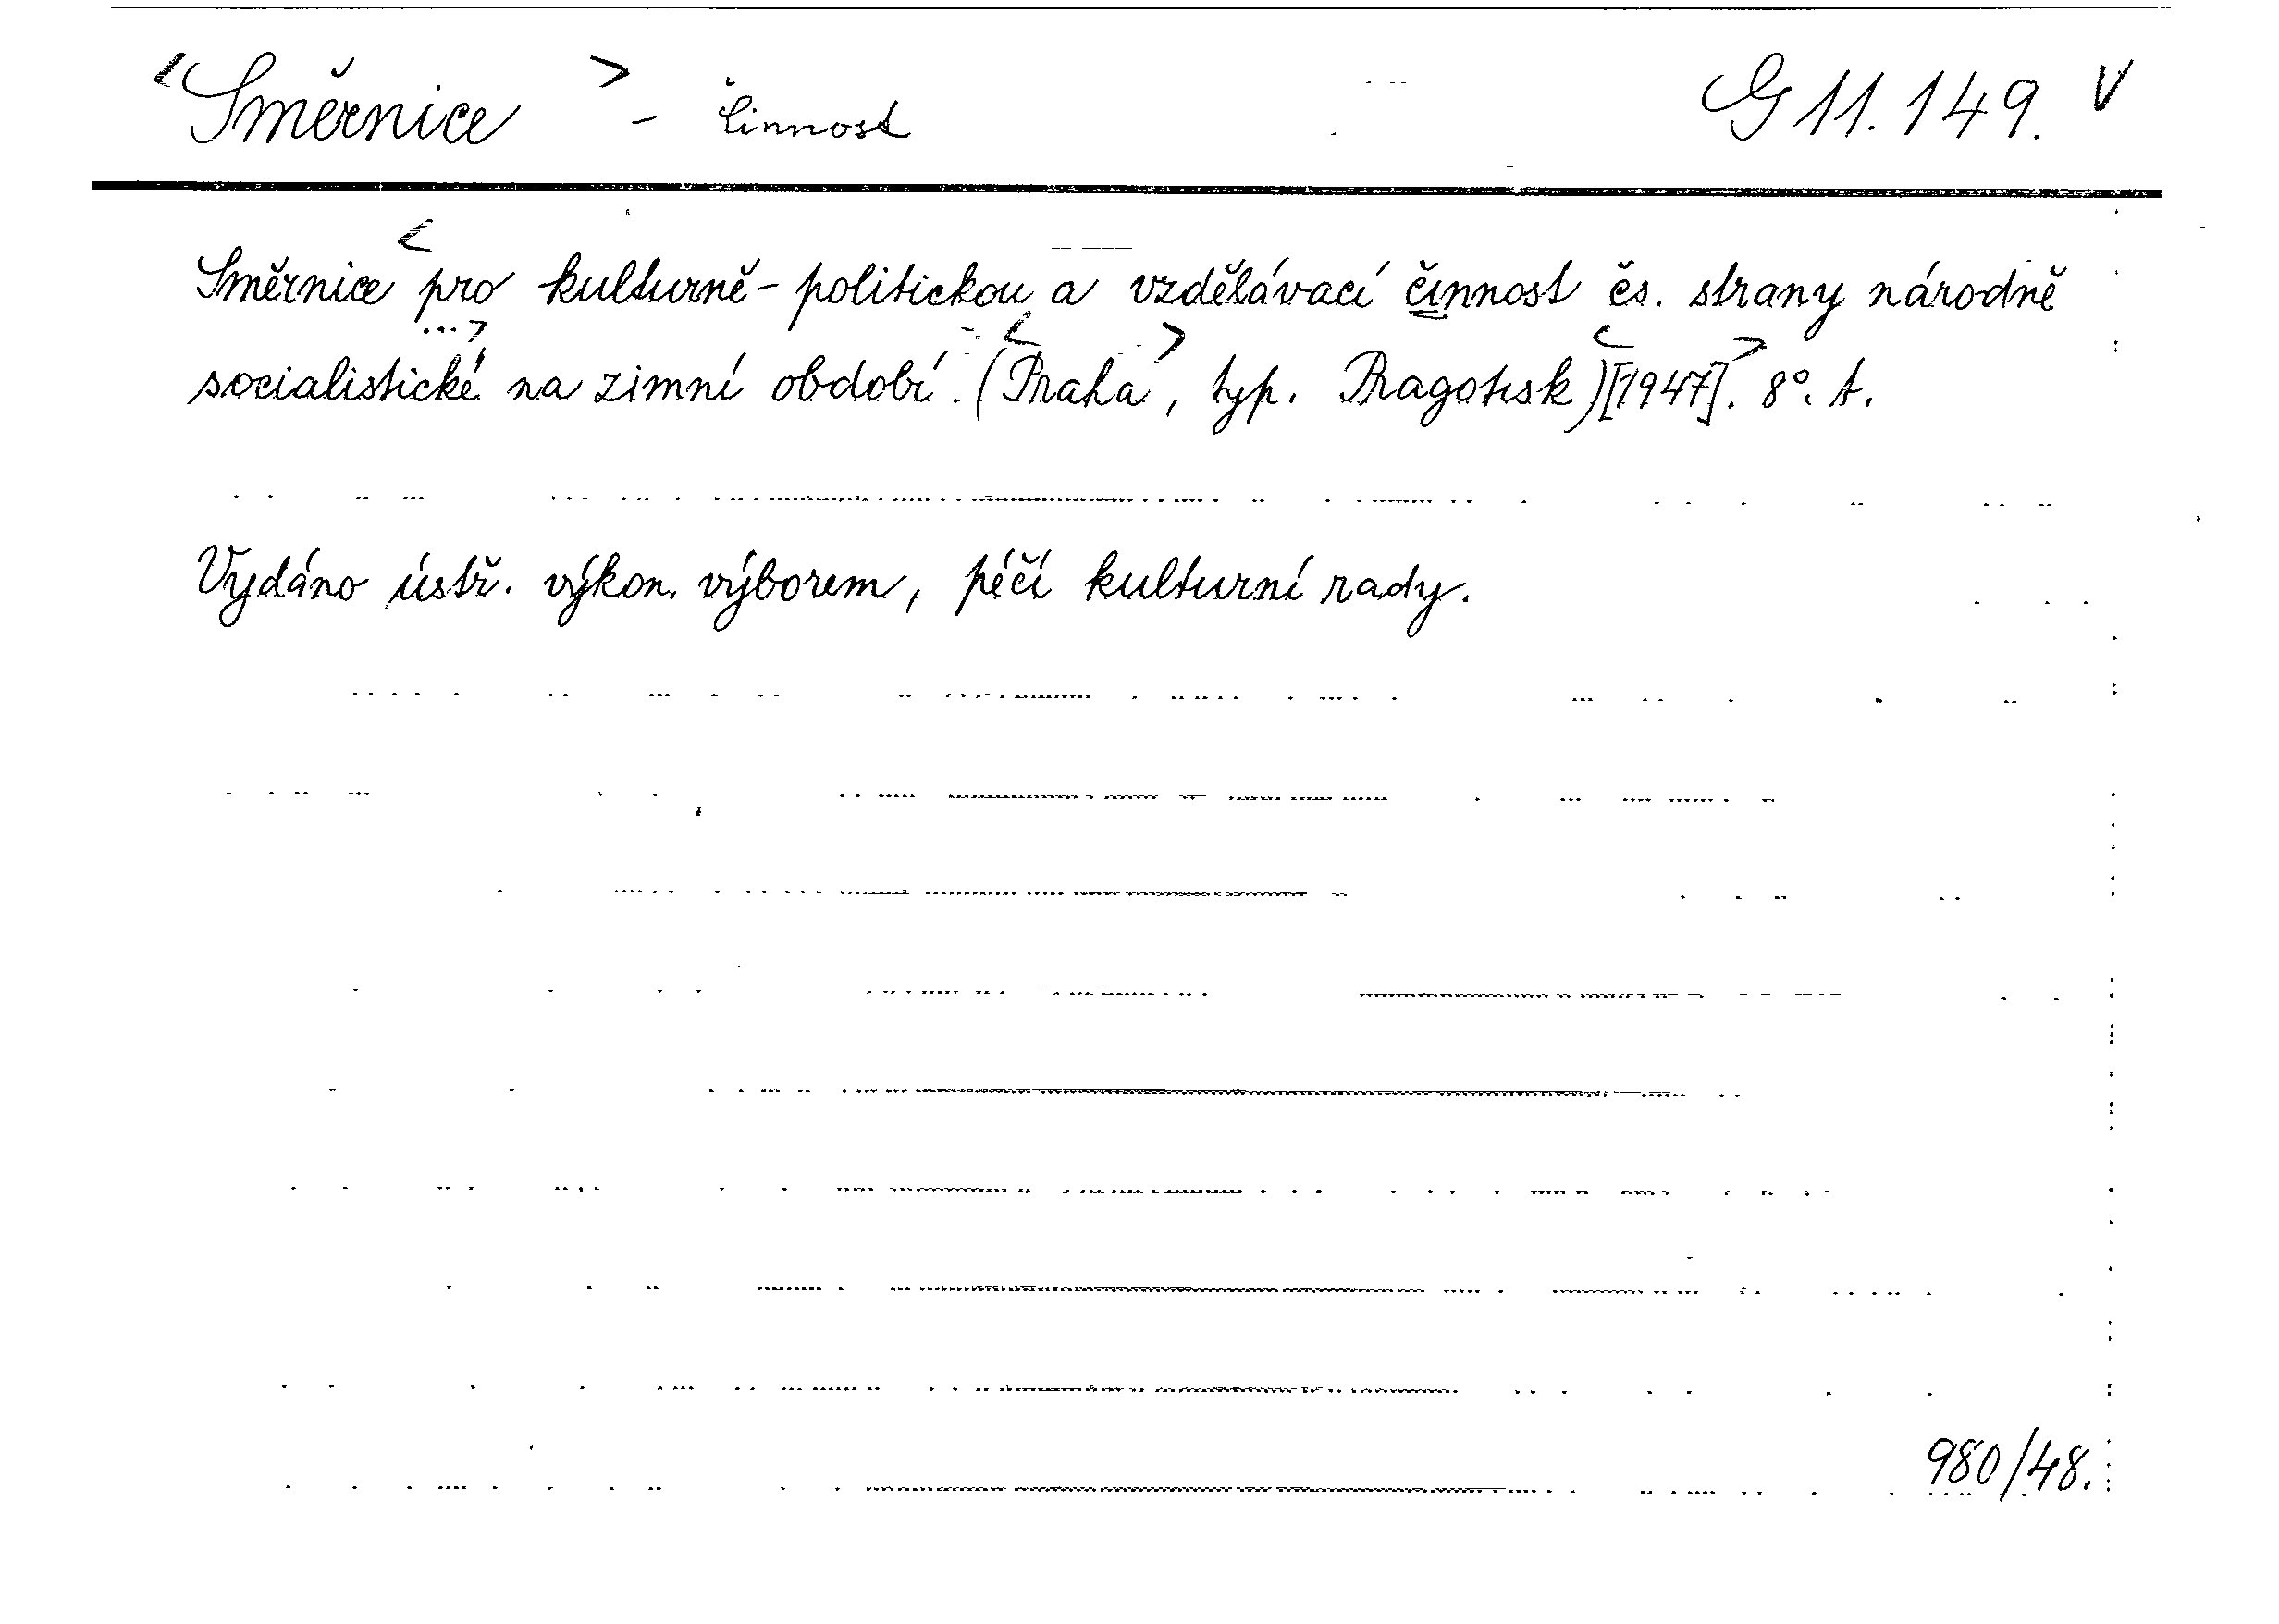 <Směrnice> - činnost G 11.149. V
Směrnice <pro kulturně-politickou a vzdělávací činnost čs. strany národně
socialistické...> na zimní období. (<Praha>, typ. Pragotisk)<[1947].> 8°. A.
Vydáno ústř. výkon. výborem, péčí kulturní rady.
980/48.